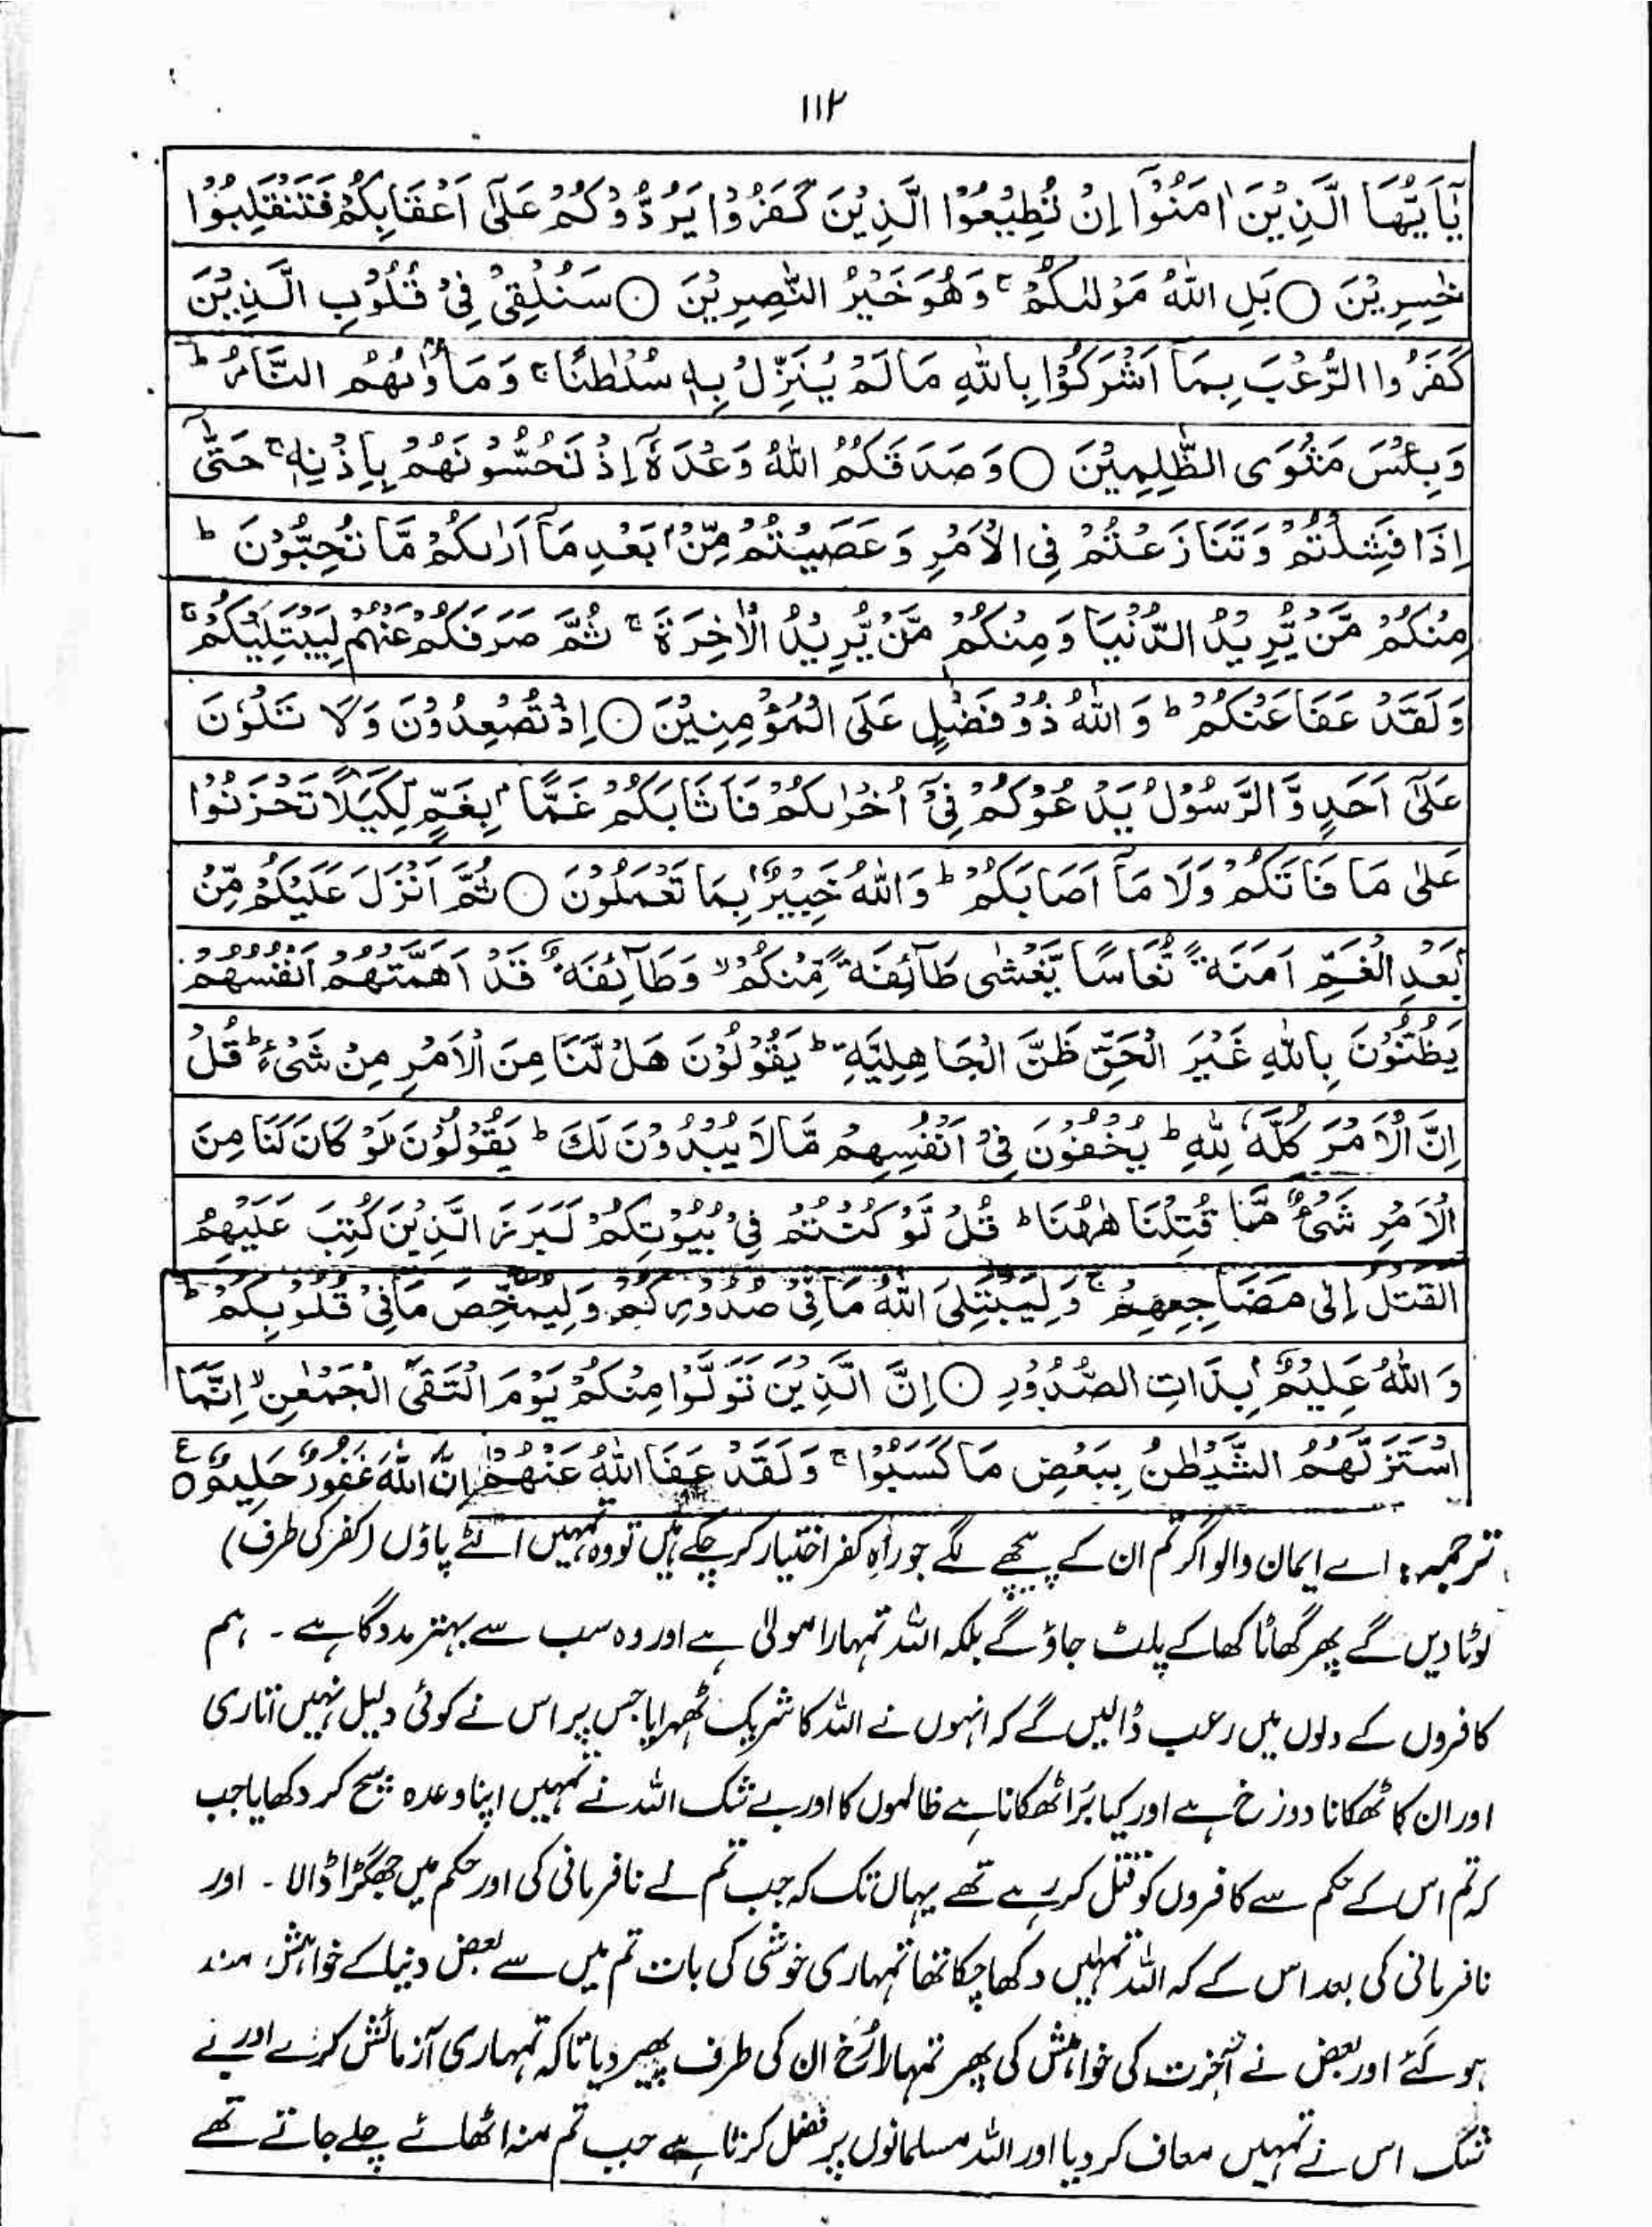 ۱۱۲
یٰۤاَیُّهَا الَّذِیْنَ اٰمَنُوْۤا اِنْ تُطِیْعُوا الَّذِیْنَ كَفَرُوْا یَرُدُّوْكُمْ عَلٰۤی اَعْقَابِكُمْ فَتَنْقَلِبُوْا
خٰسِرِیْنَ ○ بَلِ اللّٰهُ مَوْلٰىكُمْ ۚ وَهُوَ خَیْرُ النّٰصِرِیْنَ ○ سَنُلْقِیْ فِیْ قُلُوْبِ الَّذِیْنَ
كَفَرُوا الرُّعْبَ بِمَاۤ اَشْرَكُوْا بِاللّٰهِ مَا لَمْ یُنَزِّلْ بِهٖ سُلْطٰنًا ۚ وَمَاْوٰىهُمُ النَّارُ ؕ
وَبِئْسَ مَثْوَی الظّٰلِمِیْنَ ○ وَصَدَقَكُمُ اللّٰهُ وَعْدَهٗۤ اِذْ تَحُسُّوْنَهُمْ بِاِذْنِهٖ ۚ حَتّٰۤی
اِذَا فَشِلْتُمْ وَتَنَازَعْتُمْ فِی الْاَمْرِ وَعَصَیْتُمْ مِّنْۢ بَعْدِ مَاۤ اَرٰىكُمْ مَّا تُحِبُّوْنَ ؕ
مِنْكُمْ مَّنْ یُّرِیْدُ الدُّنْیَا وَمِنْكُمْ مَّنْ یُّرِیْدُ الْاٰخِرَةَ ۚ ثُمَّ صَرَفَكُمْ عَنْهُمْ لِیَبْتَلِیَكُمْ ۚ
وَلَقَدْ عَفَا عَنْكُمْ ؕ وَاللّٰهُ ذُوْ فَضْلٍ عَلَی الْمُؤْمِنِیْنَ ○ اِذْ تُصْعِدُوْنَ وَلَا تَلْوٗنَ
عَلٰۤی اَحَدٍ وَّالرَّسُوْلُ یَدْعُوْكُمْ فِیْۤ اُخْرٰىكُمْ فَاَثَابَكُمْ غَمًّۢا بِغَمٍّ لِّكَیْلَا تَحْزَنُوْا
عَلٰی مَا فَاتَكُمْ وَلَا مَاۤ اَصَابَكُمْ ؕ وَاللّٰهُ خَبِیْرٌۢ بِمَا تَعْمَلُوْنَ ○ ثُمَّ اَنْزَلَ عَلَیْكُمْ مِّنْۢ
بَعْدِ الْغَمِّ اَمَنَةً نُّعَاسًا یَّغْشٰی طَآئِفَةً مِّنْكُمْ ۙ وَطَآئِفَةٌ قَدْ اَهَمَّتْهُمْ اَنْفُسُهُمْ
یَظُنُّوْنَ بِاللّٰهِ غَیْرَ الْحَقِّ ظَنَّ الْجَاهِلِیَّةِ ؕ یَقُوْلُوْنَ هَلْ لَّنَا مِنَ الْاَمْرِ مِنْ شَیْءٍ ؕ قُلْ
اِنَّ الْاَمْرَ كُلَّهٗ لِلّٰهِ ؕ یُخْفُوْنَ فِیْۤ اَنْفُسِهِمْ مَّا لَا یُبْدُوْنَ لَكَ ؕ یَقُوْلُوْنَ لَوْ كَانَ لَنَا مِنَ
الْاَمْرِ شَیْءٌ مَّا قُتِلْنَا هٰهُنَا ؕ قُلْ لَّوْ كُنْتُمْ فِیْ بُیُوْتِكُمْ لَبَرَزَ الَّذِیْنَ كُتِبَ عَلَیْهِمُ
الْقَتْلُ اِلٰی مَضَاجِعِهِمْ ۚ وَلِیَبْتَلِیَ اللّٰهُ مَا فِیْ صُدُوْرِكُمْ وَلِیُمَحِّصَ مَا فِیْ قُلُوْبِكُمْ ؕ
وَاللّٰهُ عَلِیْمٌۢ بِذَاتِ الصُّدُوْرِ ○ اِنَّ الَّذِیْنَ تَوَلَّوْا مِنْكُمْ یَوْمَ الْتَقَی الْجَمْعٰنِ ۙ اِنَّمَا
اسْتَزَلَّهُمُ الشَّیْطٰنُ بِبَعْضِ مَا كَسَبُوْا ۚ وَلَقَدْ عَفَا اللّٰهُ عَنْهُمْ ؕ اِنَّ اللّٰهَ غَفُوْرٌ حَلِیْمٌ ○ ع
ترجمہ: اے ایمان والو اگر تم ان کے پیچھے لگے جو راہ کفر اختیار کر چکے ہیں تو وہ تمہیں الٹے پاؤں (کفر کی طرف)
لوٹا دیں گے پھر گھاٹا کھا کے پلٹ جاؤ گے بلکہ اللہ تمہارا مولیٰ ہے اور وہ سب سے بہتر مددگا ہے ۔ ہم
کافروں کے دلوں میں رعب ڈالیں گے کہ انہوں نے اللہ کا شریک ٹھہرایا جس پر اس نے کوئی دلیل نہیں اتاری
اور ان کا ٹھکانا دوزخ ہے اور کیا بُرا ٹھکانا ہے ظالموں کا اور بے شک اللہ نے تمہیں اپنا وعدہ سچ کر دکھایا جب
کہ تم اس کے حکم سے کافروں کو قتل کر رہے تھے یہاں تک کہ جب تم نے نافرمانی کی اور حکم میں جھگڑا ڈالا ۔ اور
نافرمانی کی بعد اس کے کہ اللہ تمہیں دکھا چکا تھا تمہاری خوشی کی بات تم میں سے بعض دنیا کے خواہش مند
ہو گئے اور بعض نے آخرت کی خواہش کی پھر تمہارا رُخ ان کی طرف پھیر دیا تاکہ تمہاری آزمائش کرے اور بے
شک اس نے تمہیں معاف کر دیا اور اللہ مسلمانوں پر فضل کرتا ہے جب تم منہ اٹھائے چلے جاتے تھے